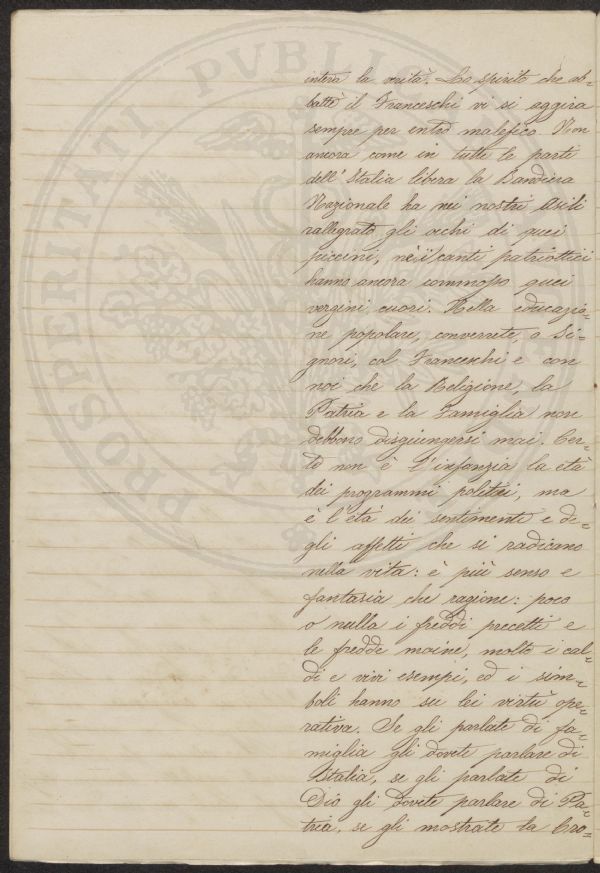 PROSPERITATI PVBLIC
intera la verità. Lo spirito che ab=
battè il Franceschi vi si aggira
sempre per entro malefico. Non
ancora come in tutte le parti
dell'Italia libera la Bandiera
Nazionale ha nei nostri Asili
rallegrato gli occhi di quei
piccini, nè i canti patriottici
hanno ancora commosso quei
vergini cuori. Nella educazio=
ne popolare, converrete, o Si=
gnori, col Franceschi e con
noi che la Religione, la
Patria e la Famiglia non
debbono disgiungersi mai. Cer=
to non è l'infanzia la età
dei programmi politici, ma
è l'età dei sentimenti e de=
gli affetti che si radicano
nella vita: è più senso e
fantasia che ragione: poco
o nulla i freddi precetti e
le fredde moine, molto i cal=
di e vivi esempi, ed i sim=
boli hanno su lei virtù ope=
rativa. Se gli parlate di fa=
miglia gli dovete parlare di
Italia, se gli parlate di
Dio gli dovete parlare di Pa=
tria, se gli mostrate la Cro=